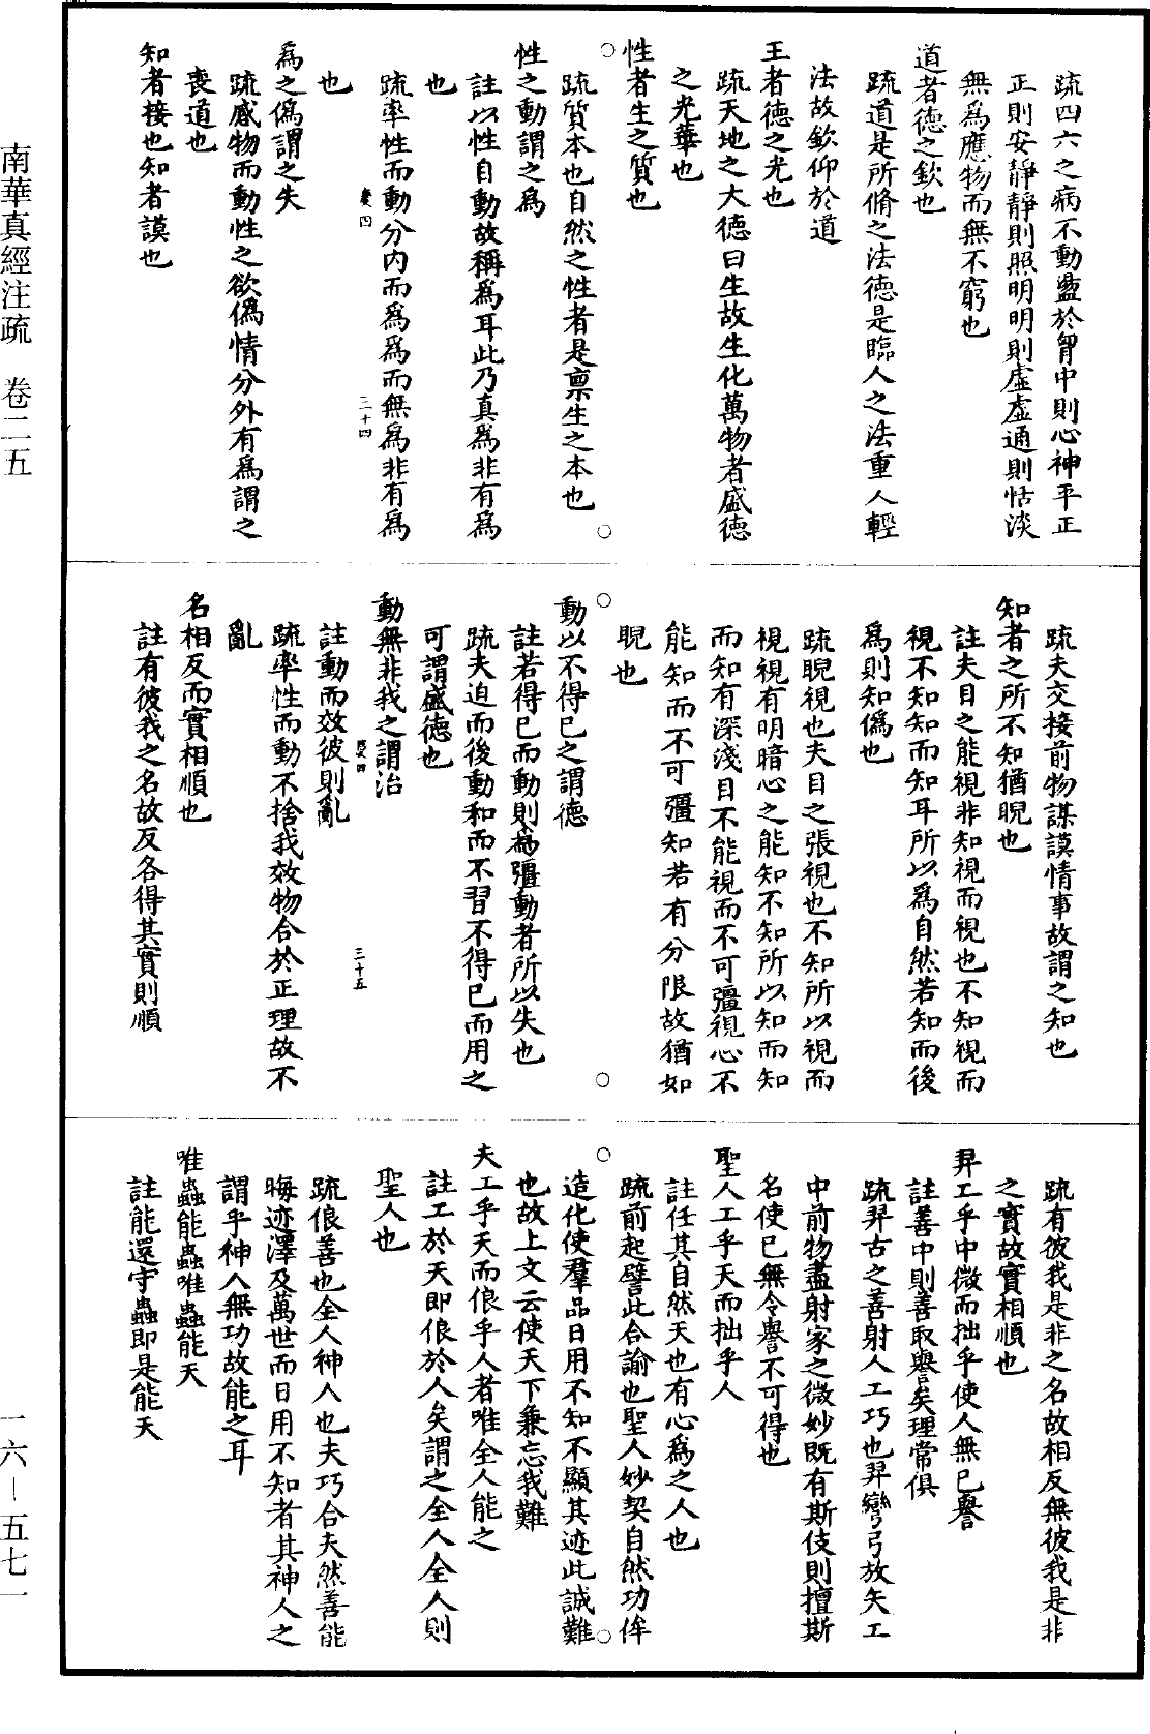 疏四六之病不動盪於胷中則心神平正
正則安靜靜則照明明則虛虛通則恬淡
無爲應物而無不窮也
道者德之欽也
疏道是所脩之法德是臨人之法重人輕
法故欽仰於道
王者德之光也
疏天地之大德曰生故生化萬物者盛德
之光華也
性者生之質也
疏質本也自然之性者是禀生之本也
性之動謂之爲
註以性自動故稱爲耳此乃真爲非有爲
也
疏率性而動分内而爲爲而無爲非有爲
也
爲之僞謂之失
疏感物而動性之欲僞情分外有爲謂之
喪道也
知者接也知者謨也
三十四
疏夫交接前物謀謨情事故謂之知也
知者之所不知猶睨也
註夫目之能視非知視而視也不知視而
視不知知而知耳所以爲自然若知而後
爲則知僞也
疏睨視也夫目之張視也不知所以視而
視視有明暗心之能知不知所以知而知
而知有深淺目不能視而不可彊視心不
能知而不可彊知若有分限故猶如
睨也
動以不得已之謂德
註若得已而動則爲彊動者所以失也
疏夫迫而後動和而不習不得已而用之
可謂盛德也
動無非我之謂治
註動而效彼則亂
疏率性而動不捨我效物合於正理故不
亂
名相反而實相順也
註有彼我之名故反各得其實則順
三十五
疏有彼我是非之名故相反無彼我是非
之實故實相順也
羿工乎中微而拙乎使人無已譽
註善中則善取譽矣理常俱
疏羿古之善射人工巧也羿彎弓放矢工
中前物盡射家之微妙既有斯伎則擅斯
名使已無令譽不可得也
聖人工乎天而拙乎人
註任其自然天也有心爲之人也
疏前起譬此合諭也聖人妙契自然功侔
造化使羣品日用不知不顯其迹此誠難
也故上文云使天下兼忘我難
夫工乎天而俍乎人者唯全人能之
註工於天即俍於人矣謂之全人全人則
聖人也
疏俍善也全人神人也夫巧合天然善能
晦迹澤及萬世而日用不知者其神人之
謂乎神人無功故能之耳
唯蟲能蟲唯蟲能天
註能還守蟲即是能天
南華真經注疏 卷二五
一六-五七一